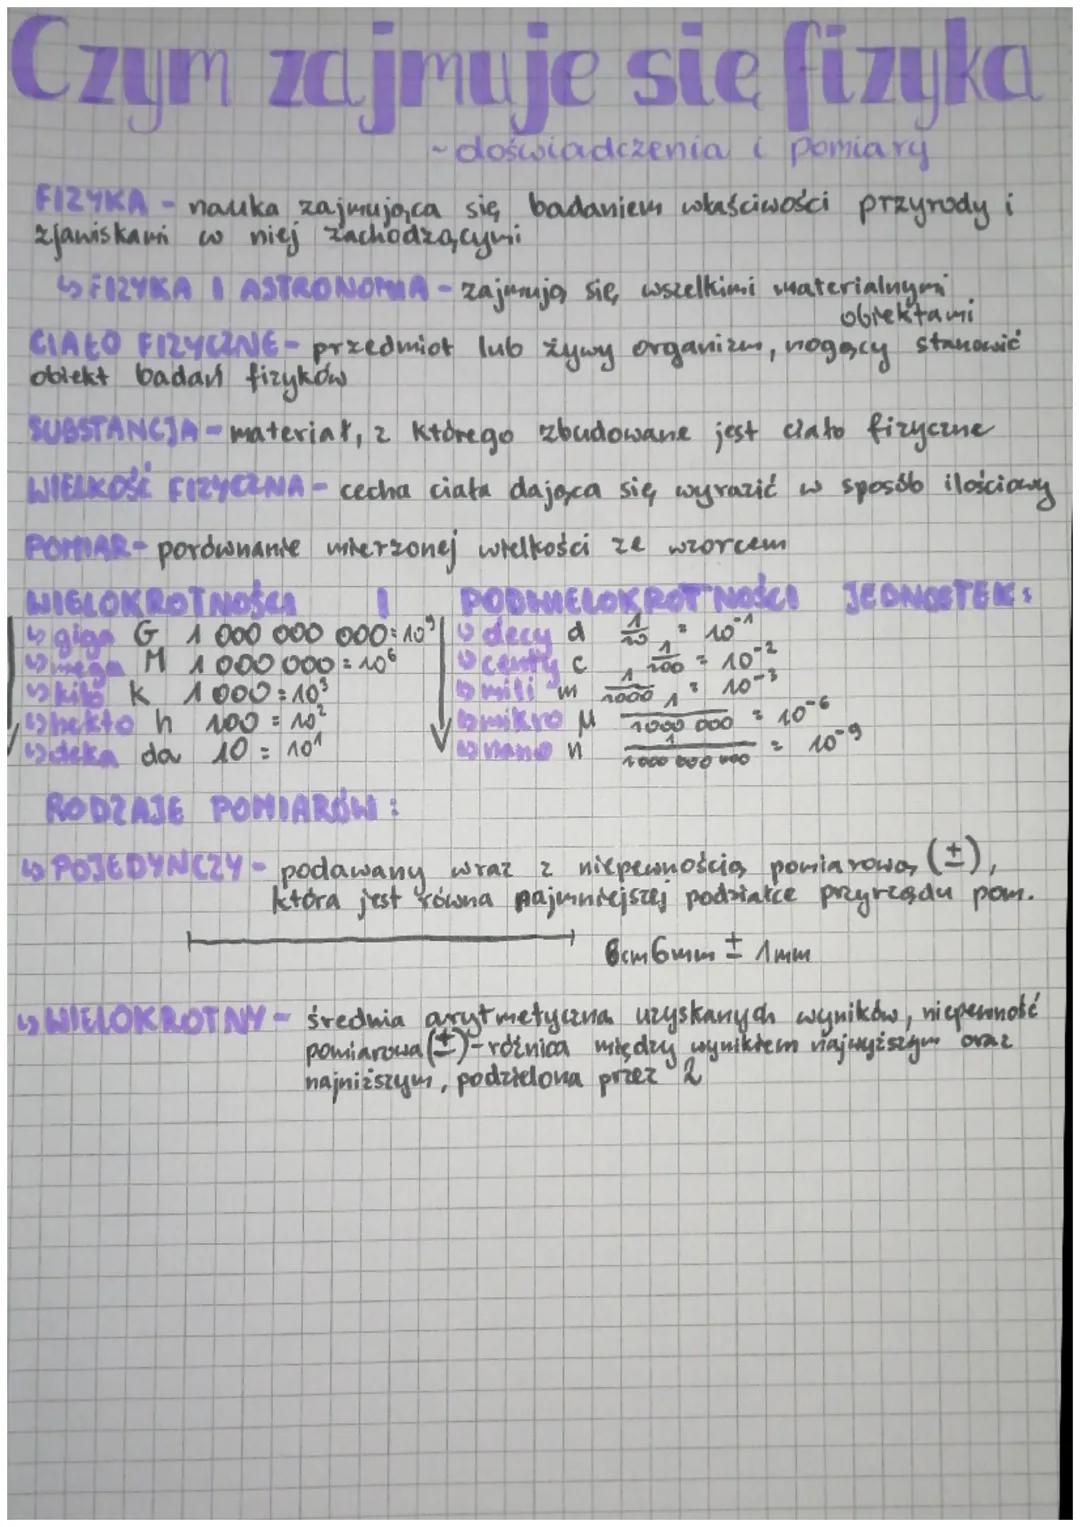 Czym zajmuje się fizyka
~doświadczenia i pomiary
FIZYKA - nauka zajmująca się badaniem właściwości przyrody i
zjawiskami w niej zachodzącymi
↳ FIZYKA I ASTRONOMIA - zajmują się wszelkimi materialnymi
obiektami
CIAŁO FIZYCZNE - przedmiot lub żywy organizm, mogący stanowić
obiekt badań fizyków
SUBSTANCJA - materiał, z którego zbudowane jest ciało fizyczne
WIELKOŚĆ FIZYCZNA - cecha ciała dająca się wyrazić w sposób ilościowy
POMIAR - porównanie mierzonej wielkości ze wzorcem
WIELOKROTNOŚCI I PODWIELOKROTNOŚCI JEDNOSTEK:
↳ giga G 1 000 000 000 = 10⁹
↳ mega M 1 000 000 = 10⁶
↳ kilo k 1 000 = 10³
↳ hekto h 100 = 10²
↳ deka da 10 = 10¹
↳ decy d 1/10 = 10⁻¹
↳ centy c 1/100 = 10⁻²
↳ mili m 1/1000 = 10⁻³
↳ mikro μ 1/1000 000 = 10⁻⁶
↳ nano n 1/1 000 000 000 = 10⁻⁹
RODZAJE POMIARÓW:
↳ POJEDYNCZY - podawany wraz z niepewnością pomiarową (±),
która jest równa najmniejszej podziałce przyrządu pom.
6cm6mm ± 1mm
↳ WIELOKROTNY - średnia arytmetyczna uzyskanych wyników, niepewność
pomiarowa (±) - różnica między wynikiem najwyższym oraz
najniższym, podzielona przez 2